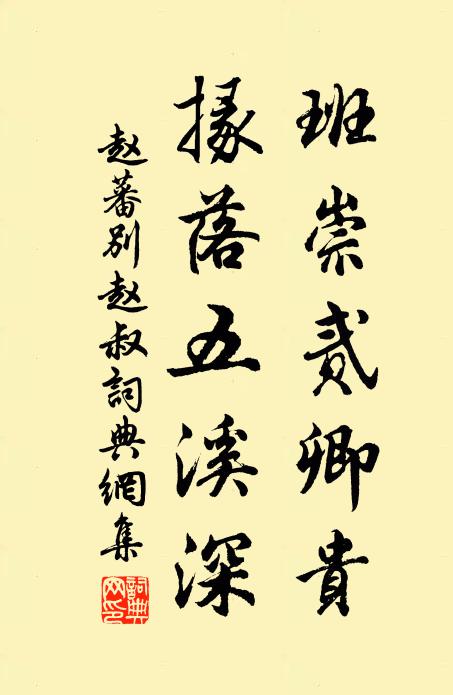 班崇貳卿貴
掾落五溪深
赵蕃别赵叔詞典網集
詞典网印